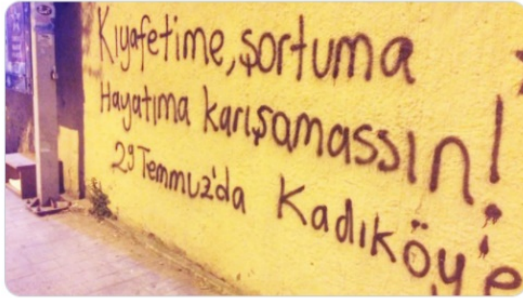 Kıyafetime, şortuma
Hayatıma karışamassın!
29 Temmuz'da Kadıköy'e